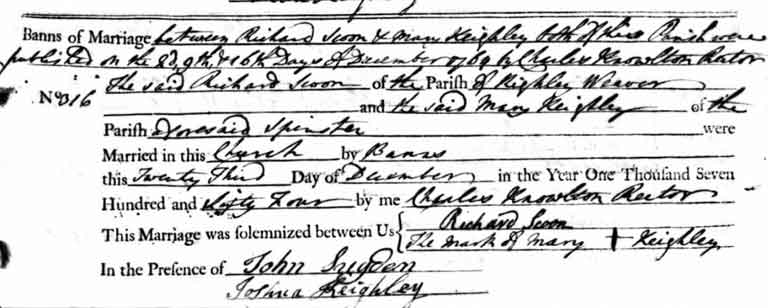 Banns of Marriage between Richard Swon & Mary Keighley both of this Parish were
published on the 2d, 9th, & 16th Days of December 1764 by Charles Knowlton Rector
The said Richard Swon of the Parish of Kighley Weaver
No. 316 and the said Mary Keighley of the
Parish aforesaid Spinster were
Married in this Church by Banns
this Twenty Third Day of December in the Year One Thousand Seven
Hundred and Sixty Four by me Charles Knowlton Rector
This Marriage was solemnized between Us { Richard Swon
The mark of Mary + Keighley
In the Presence of John Sugden
Joshua Keighley